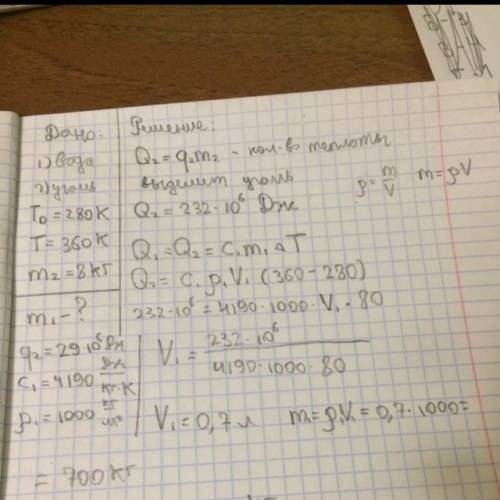 Дано:
1) вода
2) уголь
T₀ = 280 K
T = 360 K
m₂ = 8 кг
m₁ - ?
q₂ = 29·10⁶ Дж
c₁ = 4190 Дж/кг·K
ρ₁ = 1000 кг/м³
Решение:
Q₂ = q₂m₂ - кол-во теплоты
выделит уголь
ρ = m/V m = ρV
Q₂ = 232·10⁶ Дж
Q₁ = Q₂ = c₁m₁ΔT
Q₂ = c₁ρ₁V₁ (360 - 280)
232·10⁶ = 4190·1000·V₁·80
V₁ = 232·10⁶ / 4190·1000·80
V₁ = 0,7 л m = ρ₁V₁ = 0,7·1000 =
= 700 кг